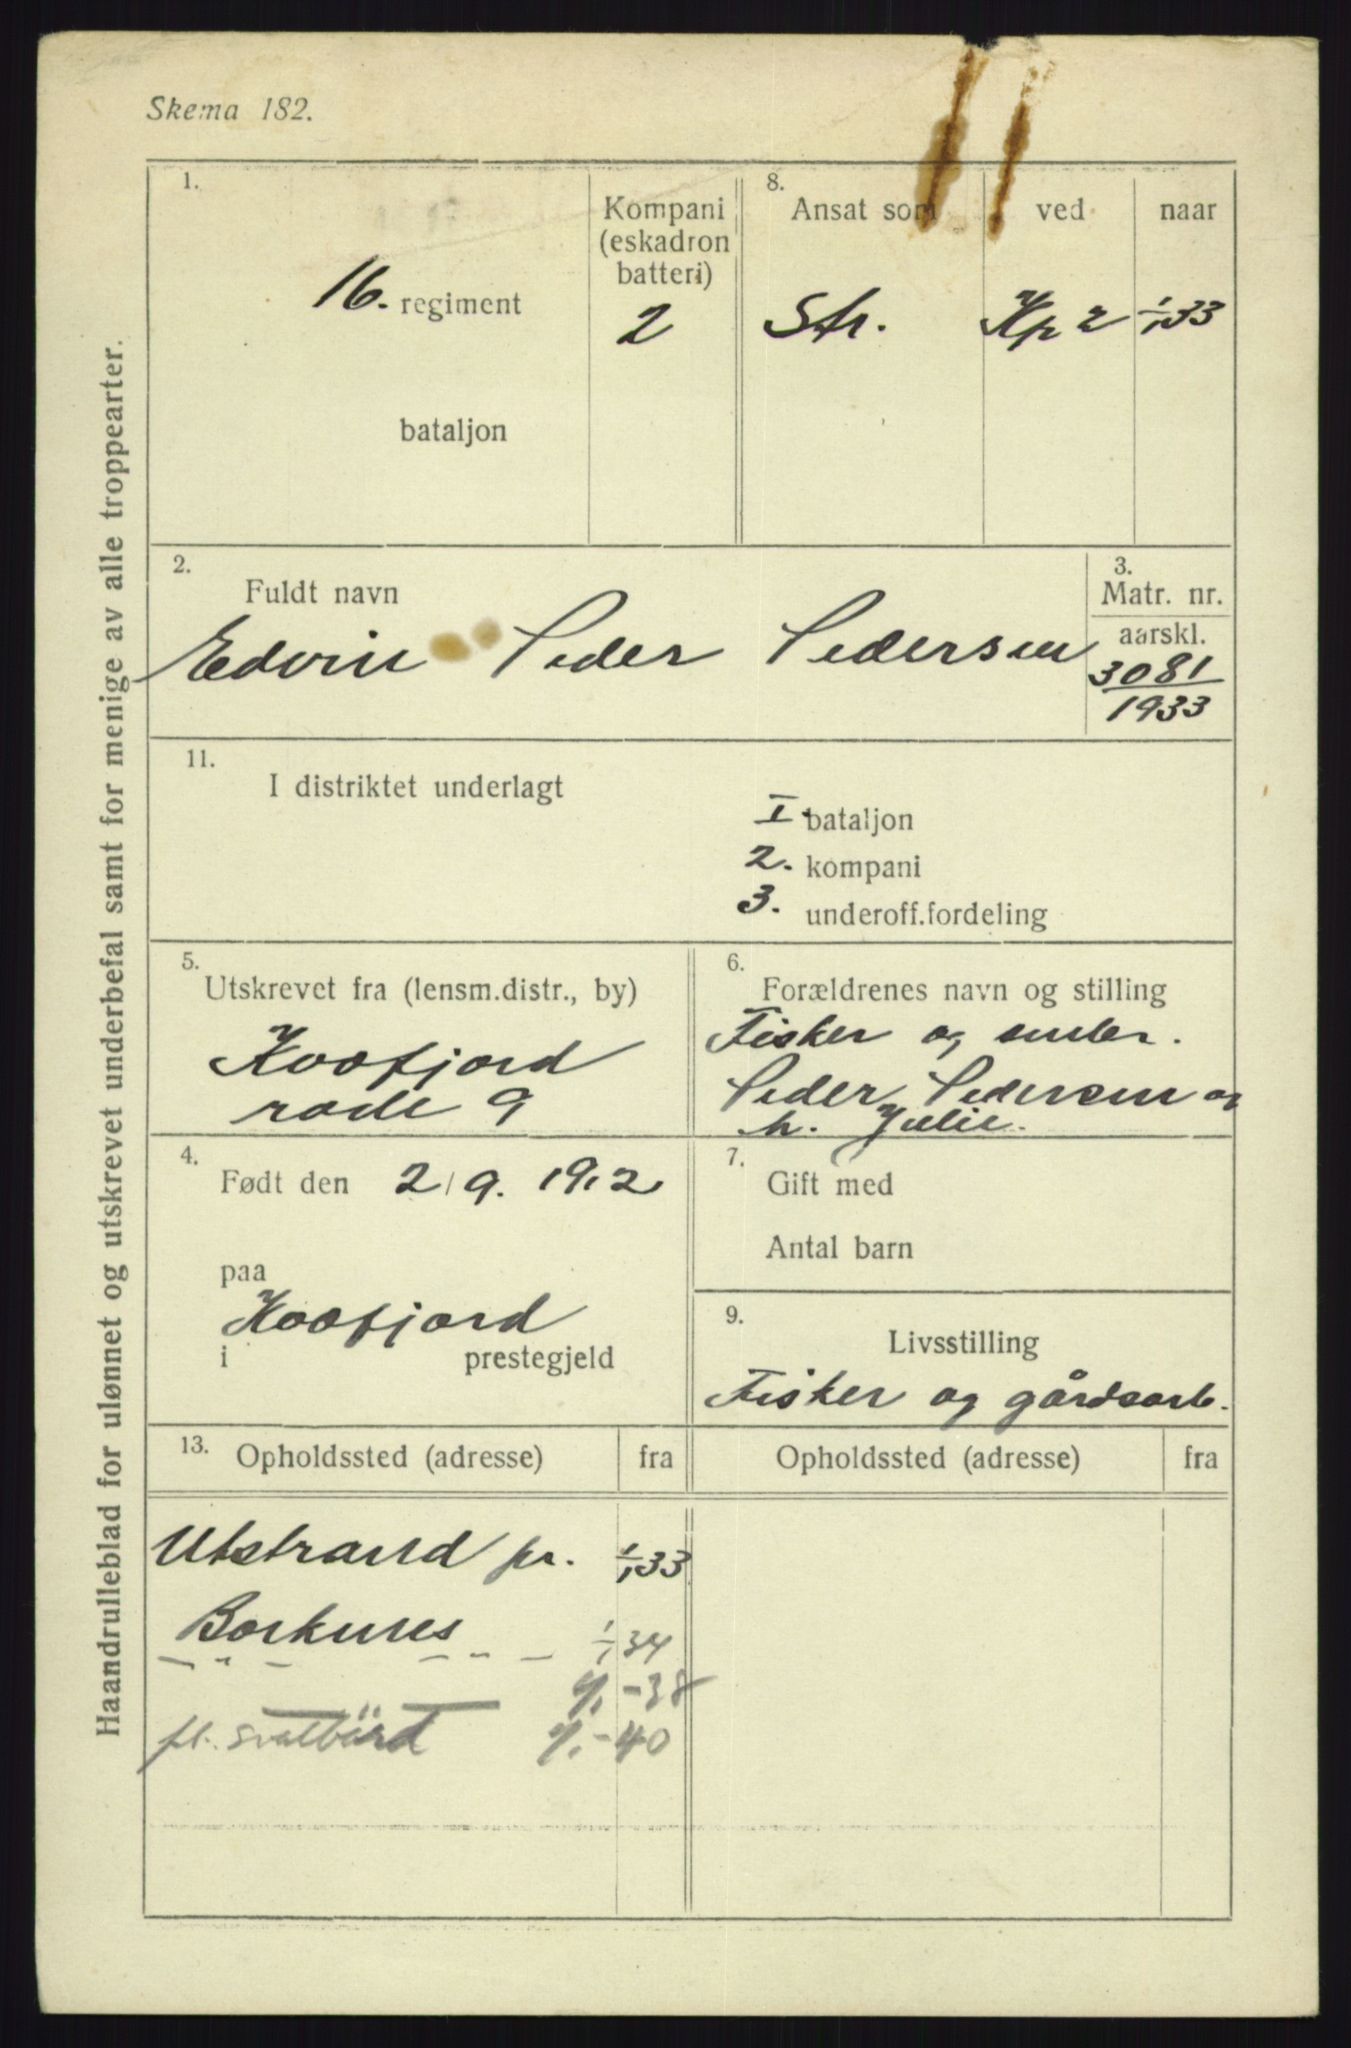 Skema 182.
Haandrulleblad for ulønnet og utskrevet underbefal samt for menige av alle troppearter.
1.
16. regiment
bataljon
Kompani
(eskadron
batteri)
2
8.
Ansat som ved naar
Str. Kp 2 1/1 33
2.
Fuldt navn
Edvin Peder Pedersen
3.
Matr. nr.
aarskl.
3081
1933
11.
I distriktet underlagt
I. bataljon
2. kompani
3. underoff.fordeling
5.
Utskrevet fra (lensm.distr., by)
Kvæfjord
rode 9
6.
Forældrenes navn og stilling
Fisker og
Peder Pedersen og
h. Julie.
4.
Født den 2/9. 1912
paa
Kvæfjord
i prestegjeld
7.
Gift med
Antal barn
9.
Livsstilling
Fisker og gårdsarb.
13.
Opholdssted (adresse) fra
Utstrand pr. 1/1 33
Borkenes 1/1 34
— " — — " —
1/1 - 38
fl. Svalbard 1/1 - 40
Opholdssted (adresse) fra